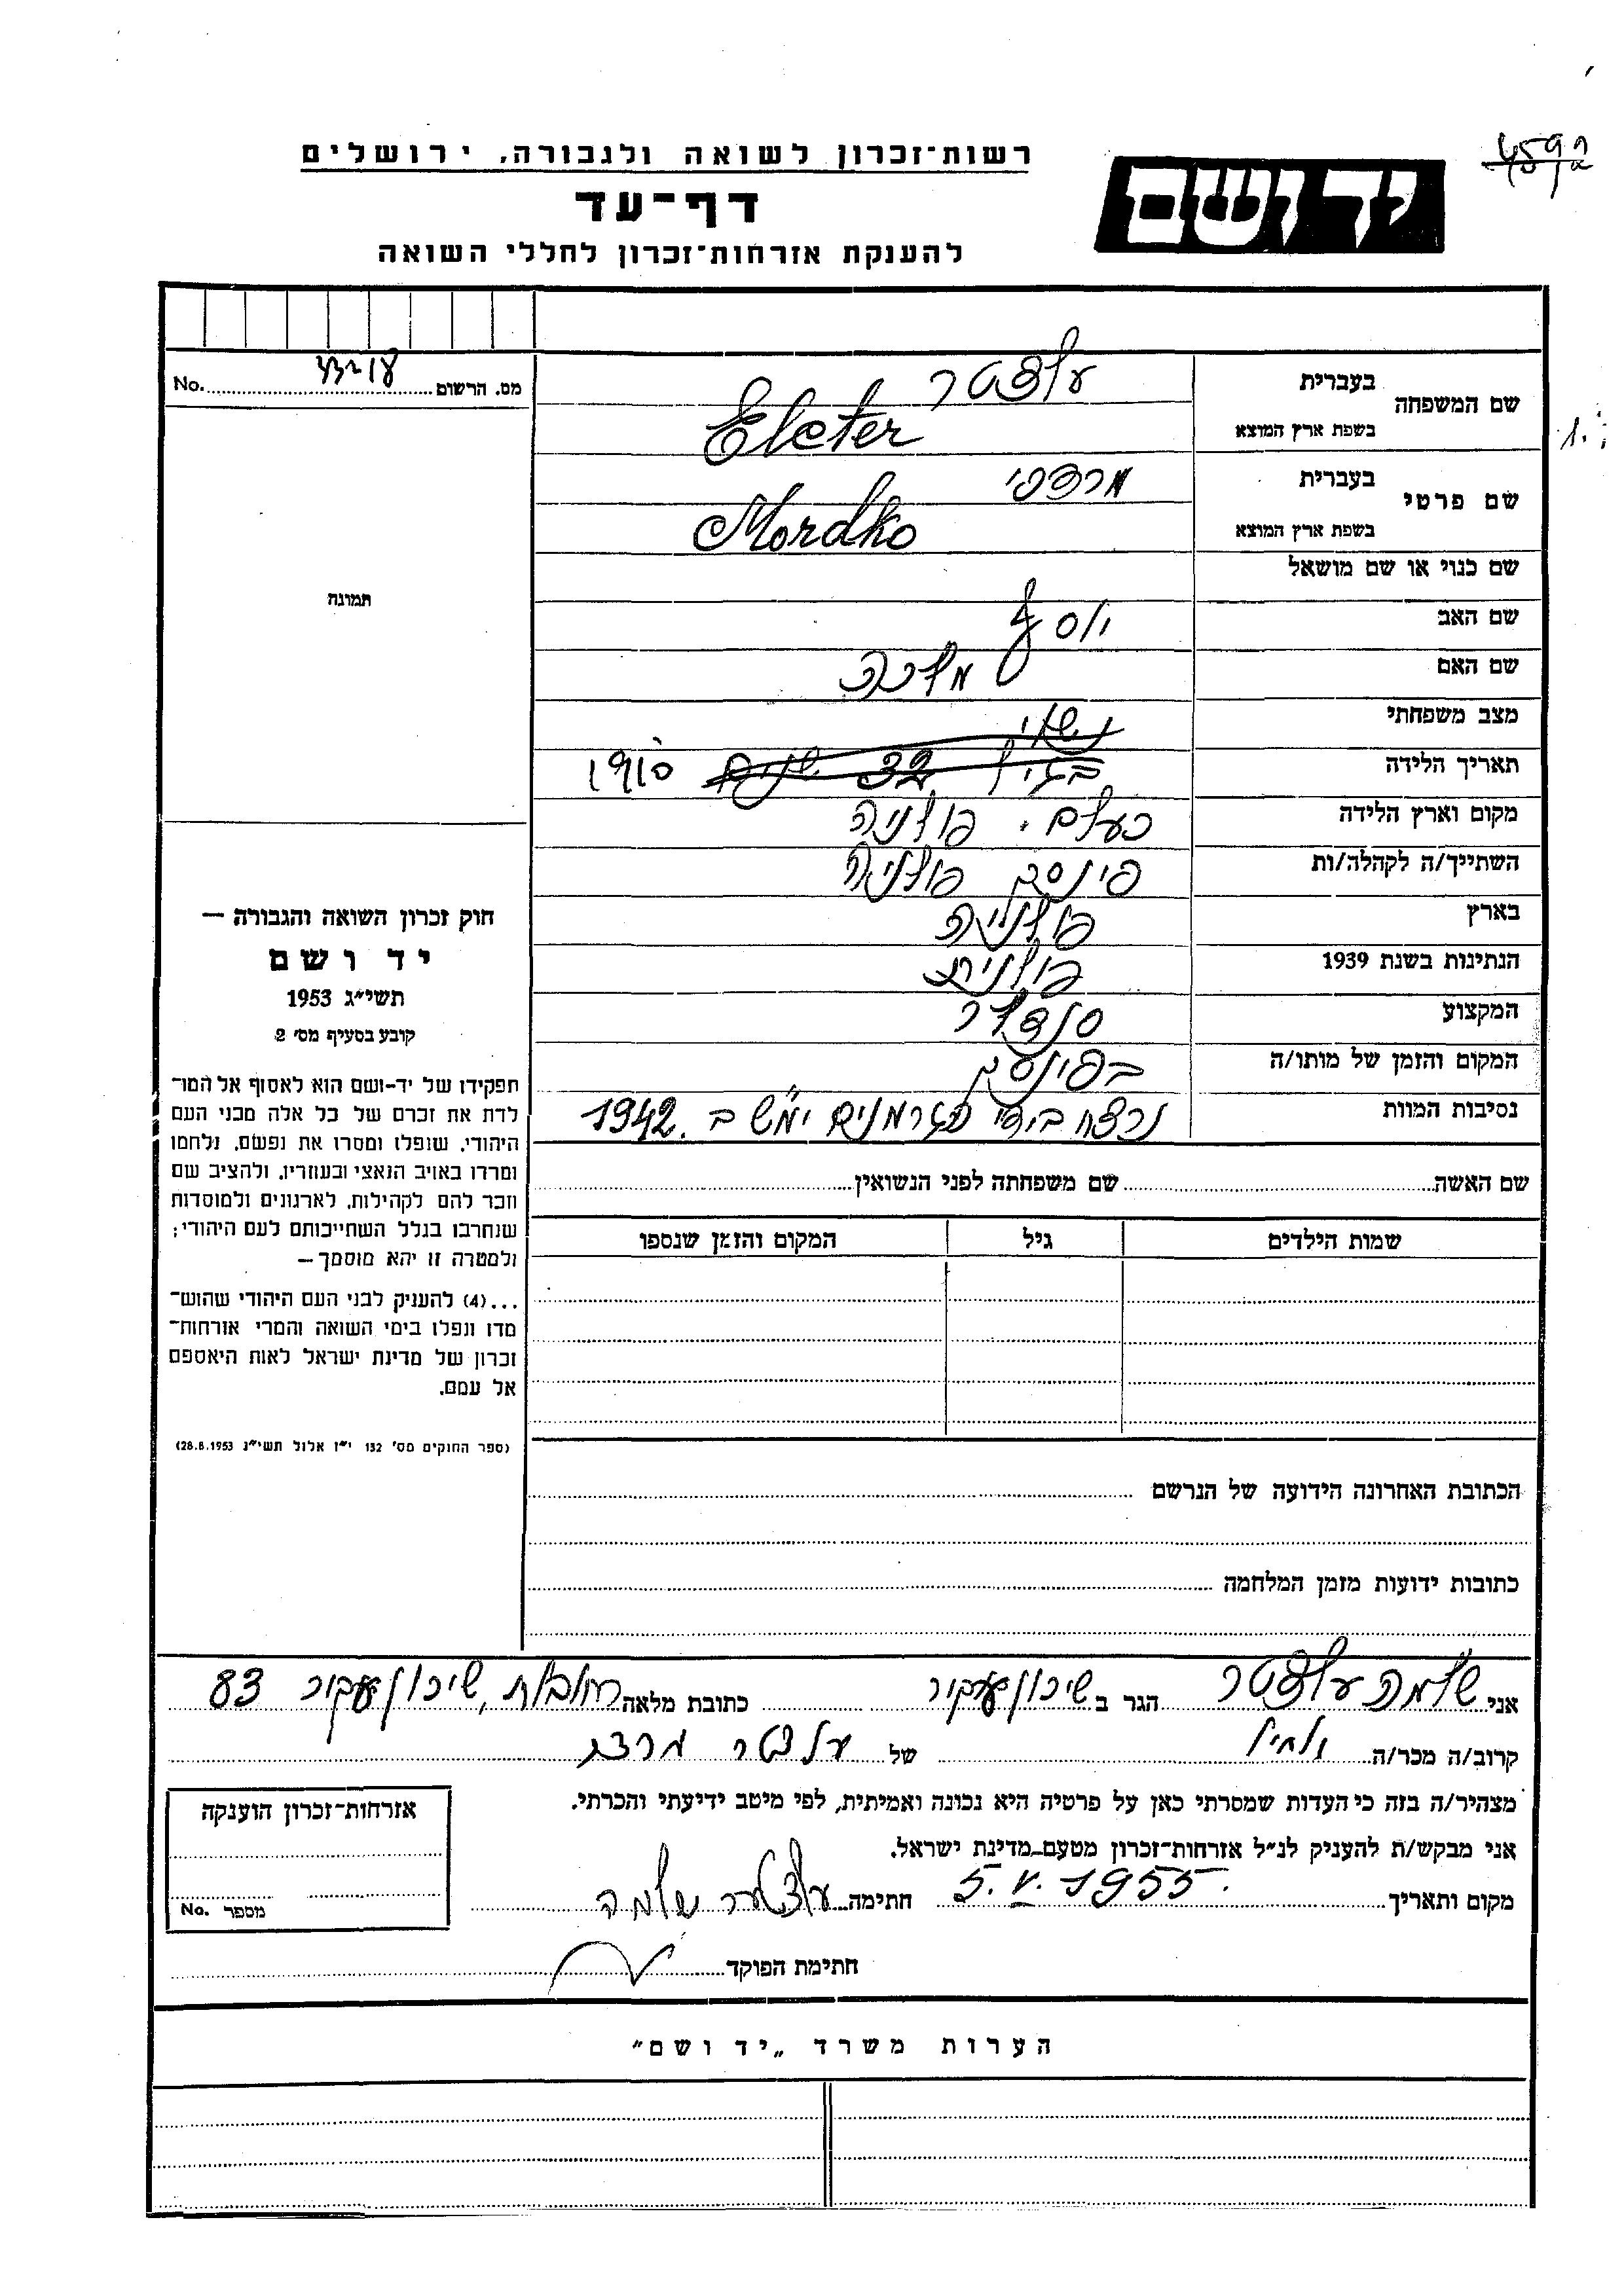 רשות־זכרון לשואה ולגבורה, ירושלים
יד ושם
דף־עד
להענקת אזרחות־זכרון לחללי השואה
מס. הרשום No.
שם המשפחה
בעברית
בשפת ארץ המוצא Elcter
שם פרטי
בעברית מרדכי
בשפת ארץ המוצא Mordko
שם כנוי או שם מושאל
שם האב יוסף
שם האם מלכה
מצב משפחתי נשוי
תאריך הלידה בגיל 32 שנים 1910
מקום וארץ הלידה פולניה
השתייך/ה לקהלה/ות פינסק פולניה
בארץ פולניה
הנתינות בשנת 1939 פולנית
המקצוע סנדלר
המקום והזמן של מותו/ה בפינסק
נסיבות המוות נרצח בידי הגרמנים ימ"ש ב 1942.
שם האשה שם משפחתה לפני הנשואין
שמות הילדים גיל המקום והזמן שנספו
הכתובת האחרונה הידועה של הנרשם
כתובות ידועות מזמן המלחמה
תמונה
חוק זכרון השואה והגבורה —
יד ושם
תשי"ג 1953
קובע בסעיף מס' 2
תפקידו של יד-ושם הוא לאסוף אל המו־
לדת את זכרם של כל אלה מבני העם
היהודי, שנפלו ומסרו את נפשם, נלחמו
ומרדו באויב הנאצי ובעוזריו, ולהציב שם
וזכר להם לקהילות, לארגונים ולמוסדות
שנחרבו בגלל השתייכותם לעם היהודי;
ולמטרה זו יהא מוסמך —
...(4) להעניק לבני העם היהודי שהוש־
מדו ונפלו בימי השואה והמרי אזרחות־
זכרון של מדינת ישראל לאות היאספם
אל עמם.
(ספר החוקים מס' 132 י"ז אלול תשי"ג 28.8.1953)
אני שלמה הגר ב שיכון עקיר כתובת מלאה רחובות, שיכון עקיר 83
קרוב/ה מכר/ה של
מצהיר/ה בזה כי העדות שמסרתי כאן על פרטיה היא נכונה ואמיתית, לפי מיטב ידיעתי והכרתי.
אני מבקש/ת להעניק לנ"ל אזרחות־זכרון מטעם מדינת ישראל.
מקום ותאריך 5.V.1955. חתימה שלמה
חתימת הפוקד
אזרחות־זכרון הוענקה
מספר No.
הערות משרד „יד ושם"